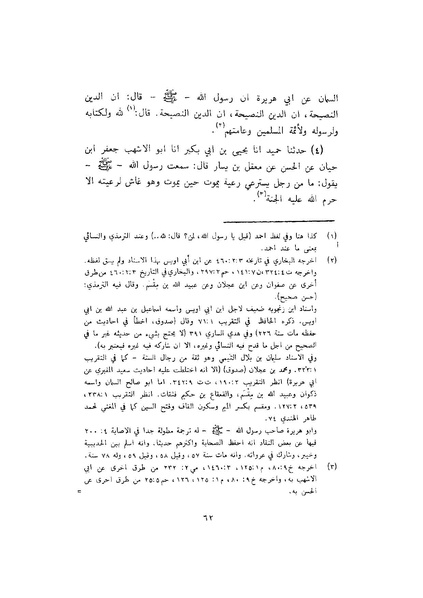 السمان عن ابي هريرة ان رسول الله - ﷺ - قال: ان الدين
النصيحة، ان الدين النصيحة، ان الدين النصيحة. قال:(١) لله ولكتابه
ولرسوله ولأئمة المسلمين وعامتهم(٢).
(٤) حدثنا حميد انا يحيى بن ابي بكير انا ابو الاشهب جعفر ابن
حيان عن الحسن عن معقل بن يسار قال: سمعت رسول الله - ﷺ -
يقول: ما من رجل يسترعي رعية يموت حين يموت وهو غاش لرعيته الا
حرم الله عليه الجنة(٣).
(١) كذا هنا وفي لفظ احمد (قيل يا رسول الله، لمن؟ قال: لله..) وعند الترمذي والنسائي
بمعنى ما عند احمد.
(٢) اخرجه البخاري في تاريخه ٤٦٠:٢:٣ عن ابن أبي اويس بهذا الاسناد ولم يسق لفظه.
واخرجه ت ٣٢٤:٤، ن ١٤١:٧، حم ٢٩٧:٢، والبخاري في التاريخ ٤٦٠:٢:٣ من طرق
أخرى عن صفوان وعن ابن عجلان وعن عبيد الله بن مقسم. وقال فيه الترمذي:
(حسن صحيح).
واسناد ابن زنجويه ضعيف لاجل ابن ابي اويس واسمه اسماعيل بن عبد الله بن أبي
اويس. ذكره الحافظ في التقريب ٧١:١ وقال (صدوق، اخطأ في احاديث من
حفظه مات سنة ٢٢٦) وفي هدي الساري ٣٩١ (لا يحتج بشيء من حديثه غير ما في
الصحيح من اجل ما قدح فيه النسائي وغيره، الا ان شاركه فيه غيره فيعتبر به).
وفي الاسناد سليمان بن بلال التيمي وهو ثقة من رجال الستة - كما في التقريب
٣٢٢:١. ومحمد بن عجلان (صدوق) (الا انه اختلطت عليه احاديث سعيد المقبري عن
ابي هريرة) انظر التقريب ١٩٠:٢، ت ت ٣٤٢:٩. اما ابو صالح السمان واسمه
ذكوان وعبيد الله بن مقسم، والقعقاع بن حكيم فثقات. انظر التقريب ٢٣٨:١،
٥٣٩، ١٢٧:٢. ومقسم بكسر الميم وسكون القاف وفتح السين كما في المغني لمحمد
طاهر الهندي ٧٤.
وابو هريرة صاحب رسول الله - ﷺ - له ترجمة مطولة جدا في الاصابة ٢٠٠:٤
فيها عن بعض النقاد انه احفظ الصحابة واكثرهم حديثا. وانه اسلم بين الحديبية
وخيبر، وشارك في غزواته. وانه مات سنة ٥٧، وقيل ٥٨، وقيل ٥٩، وله ٧٨ سنة.
(٣) اخرجه خ ٨٠:٩، م ١٢٥:١، ١٤٦٠:٣، مي ٢٣٢:٢ من طرق اخرى عن ابي
الاشهب به، واخرجه خ ٨٠:٩، م ١٢٥:١، ١٢٦، حم ٢٥:٥ من طرق اخرى عن
الحسن به.
٦٢